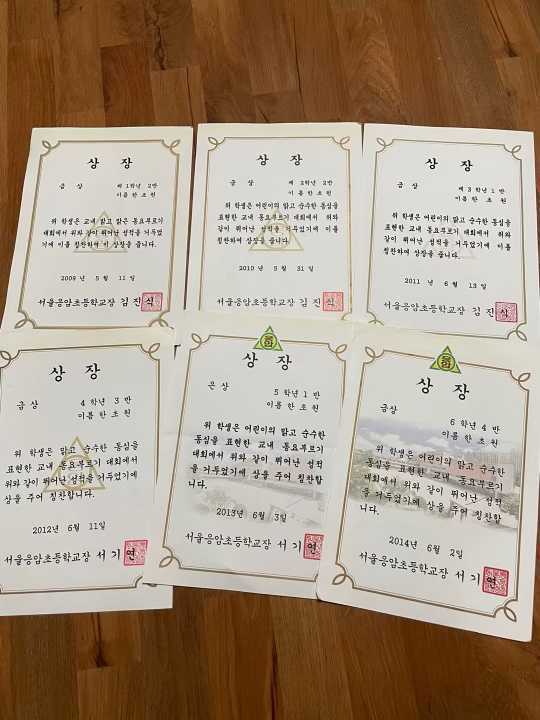 상 장
금 상
제 1학년 2반
이름 한 초 원
위 학생은 교내 맑고 맑은 동요부르기
대회에서 위와 같이 뛰어난 성적을 거두었
기에 이를 칭찬하여 이 상장을 줍니다.
2009 년 5 월 11 일
서울응암초등학교장 김 진 식
상 장
금 상
제 2학년 2반
이름 한 초 원
위 학생은 어린이의 맑고 순수한 동심을
표현한 교내 동요부르기 대회에서 위와
같이 뛰어난 성적을 거두었기에 이를
칭찬하여 상장을 줍니다.
2010 년 5 월 31 일
서울응암초등학교장 김 진 식
상 장
금 상
제 3 학년 1 반
이름 한 초 원
위 학생은 어린이의 맑고 순수한 동심을
표현한 교내 동요부르기 대회에서 위와
같이 뛰어난 성적을 거두었기에 이를
칭찬하여 상장을 줍니다.
2011 년 6 월 13 일
서울응암초등학교장 김 진 식
상 장
금 상
4 학년 3 반
이름 한 초 원
위 학생은 맑고 순수한 동심을
표현한 교내 동요부르기 대회에서
위와 같이 뛰어난 성적을 거두었기에
상을 주어 칭찬합니다.
2012년 6월 11일
서울응암초등학교장 서 기 연
상 장
은 상
5 학년 1 반
이름 한 초 원
위 학생은 어린이의 맑고 순수한
동심을 표현한 교내 동요부르기
대회에서 위와 같이 뛰어난 성적
을 거두었기에 상을 주어 칭찬합
니다.
2013년 6월 3일
서울응암초등학교장 서 기 연
상 장
금상
6 학년 4 반
이름 한 초 원
위 학생은 어린이의 맑고 순수한
동심을 표현한 교내 동요부르기
대회에서 위와 같이 뛰어난 성적
을 거두었기에 상을 주어 칭찬합
니다.
2014년 6월 2일
서울응암초등학교장 서 기 연